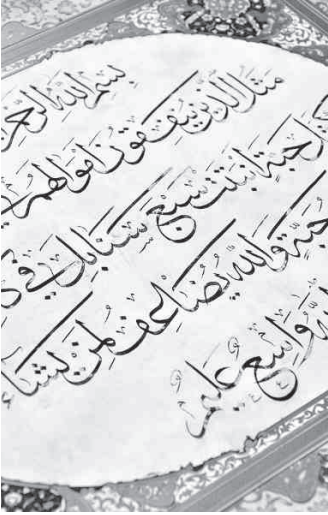 بسم الله الرحمن
مثل الذين ينفقون اموالهم
حبة انبتت سبع سنابل في
حبة والله يضاعف لمن يشاء
الله واسع عليم